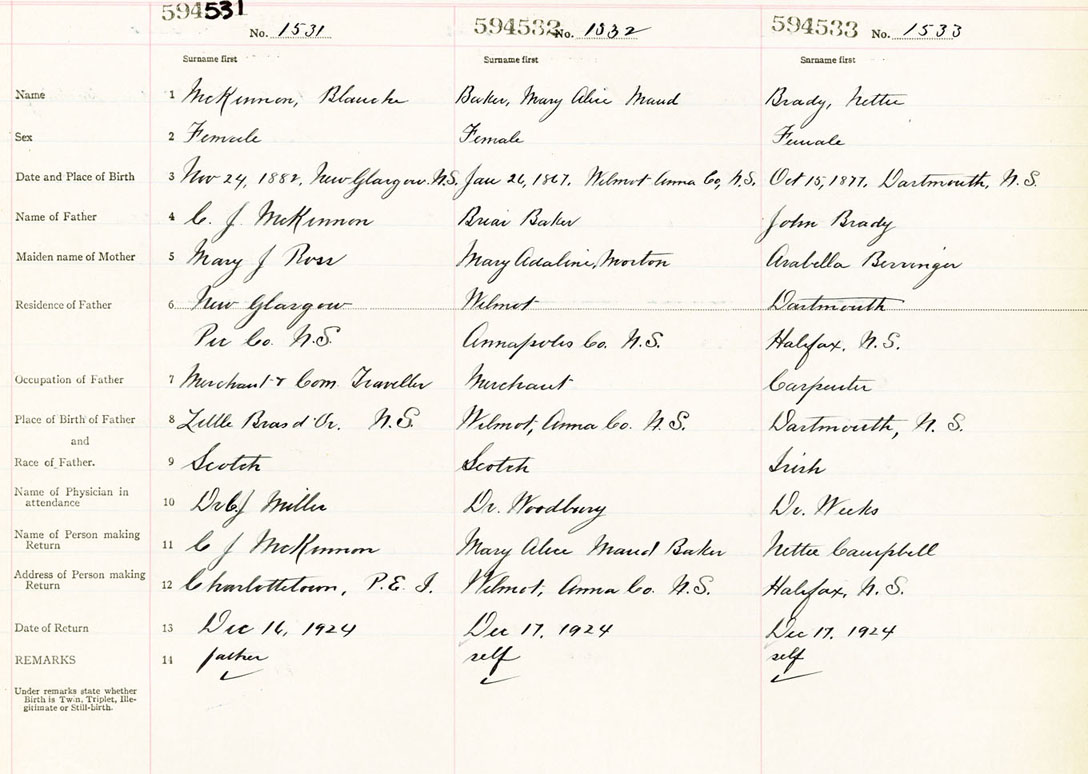 594531 594532 594533
No. 1531 No. 1532 No. 1533
Surname first Surname first Surname first
Name 1 McKinnon, Blanche Baker, Mary Alice Maud Brady, Nettie
Sex 2 Female Female Female
Date and Place of Birth 3 Nov 24, 1882, New Glasgow. N.S. Jan 26, 1867. Wilmot Anna Co, N.S. Oct 15, 1877. Dartmouth, N.S.
Name of Father 4 C. J. McKinnon Brian Baker John Brady
Maiden name of Mother 5 Mary J Ross Mary Adaline Morton Arabella Berringer
Residence of Father 6 New Glasgow Wilmot Dartmouth
Pic Co. N.S. Annapolis Co. N.S. Halifax, N.S.
Occupation of Father 7 Merchant & Com. Traveller Merchant Carpenter
Place of Birth of Father 8 Little Bras d'Or. N.S. Wilmot, Anna Co. N.S. Dartmouth, N.S.
and
Race of Father. 9 Scotch Scotch Irish
Name of Physician in
attendance 10 Dr C J Miller Dr. Woodbury Dr. Weeks
Name of Person making
Return 11 C J McKinnon Mary Alice Maud Baker Nettie Campbell
Address of Person making
Return 12 Charlottetown, P.E.I. Wilmot, Anna Co. N.S. Halifax, N.S.
Date of Return 13 Dec 16, 1924 Dec 17, 1924 Dec 17, 1924
REMARKS 14 father self self
Under remarks state whether
Birth is Twin, Triplet, Ille-
gitimate or Still-birth.